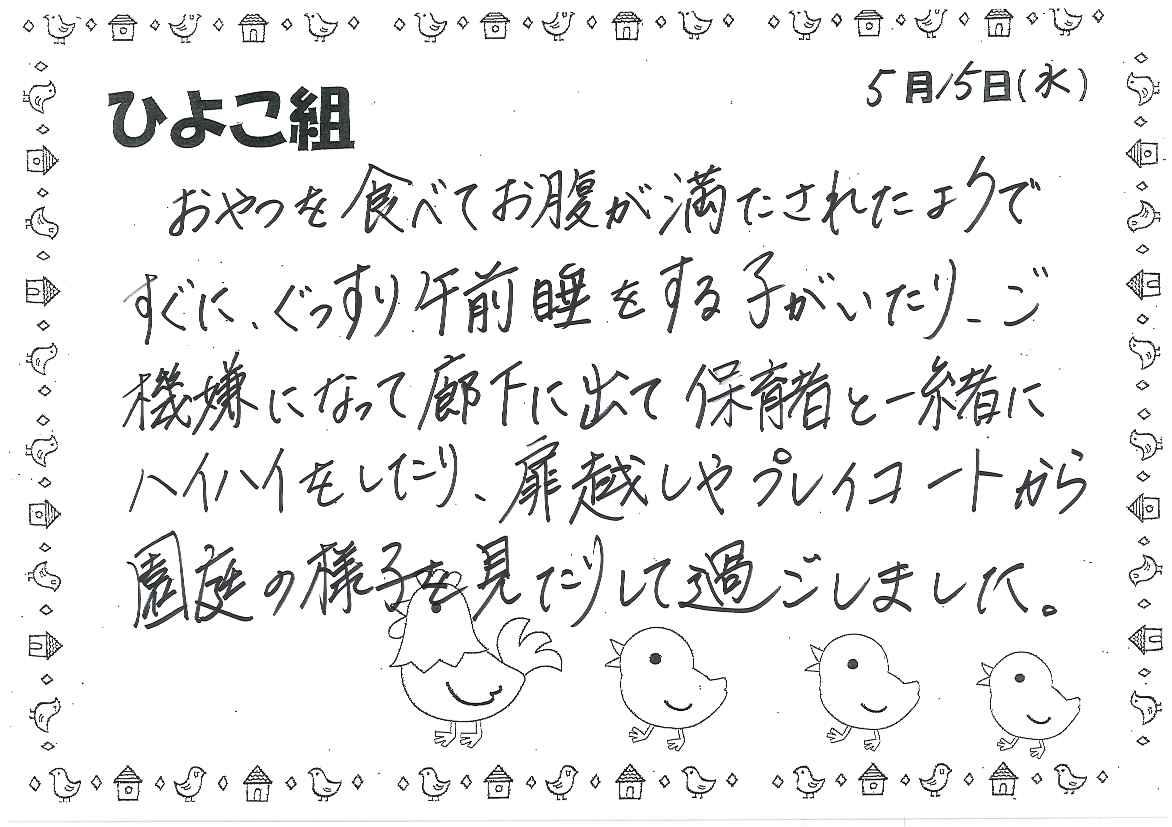 5月15日(水)
ひよこ組
おやつを食べてお腹が満たされたようで
すぐに、ぐっすり午前睡をする子がいたり、ご
機嫌になって廊下に出て保育者と一緒に
ハイハイをしたり、扉越しやプレイコートから
園庭の様子を見たりして過ごしました。